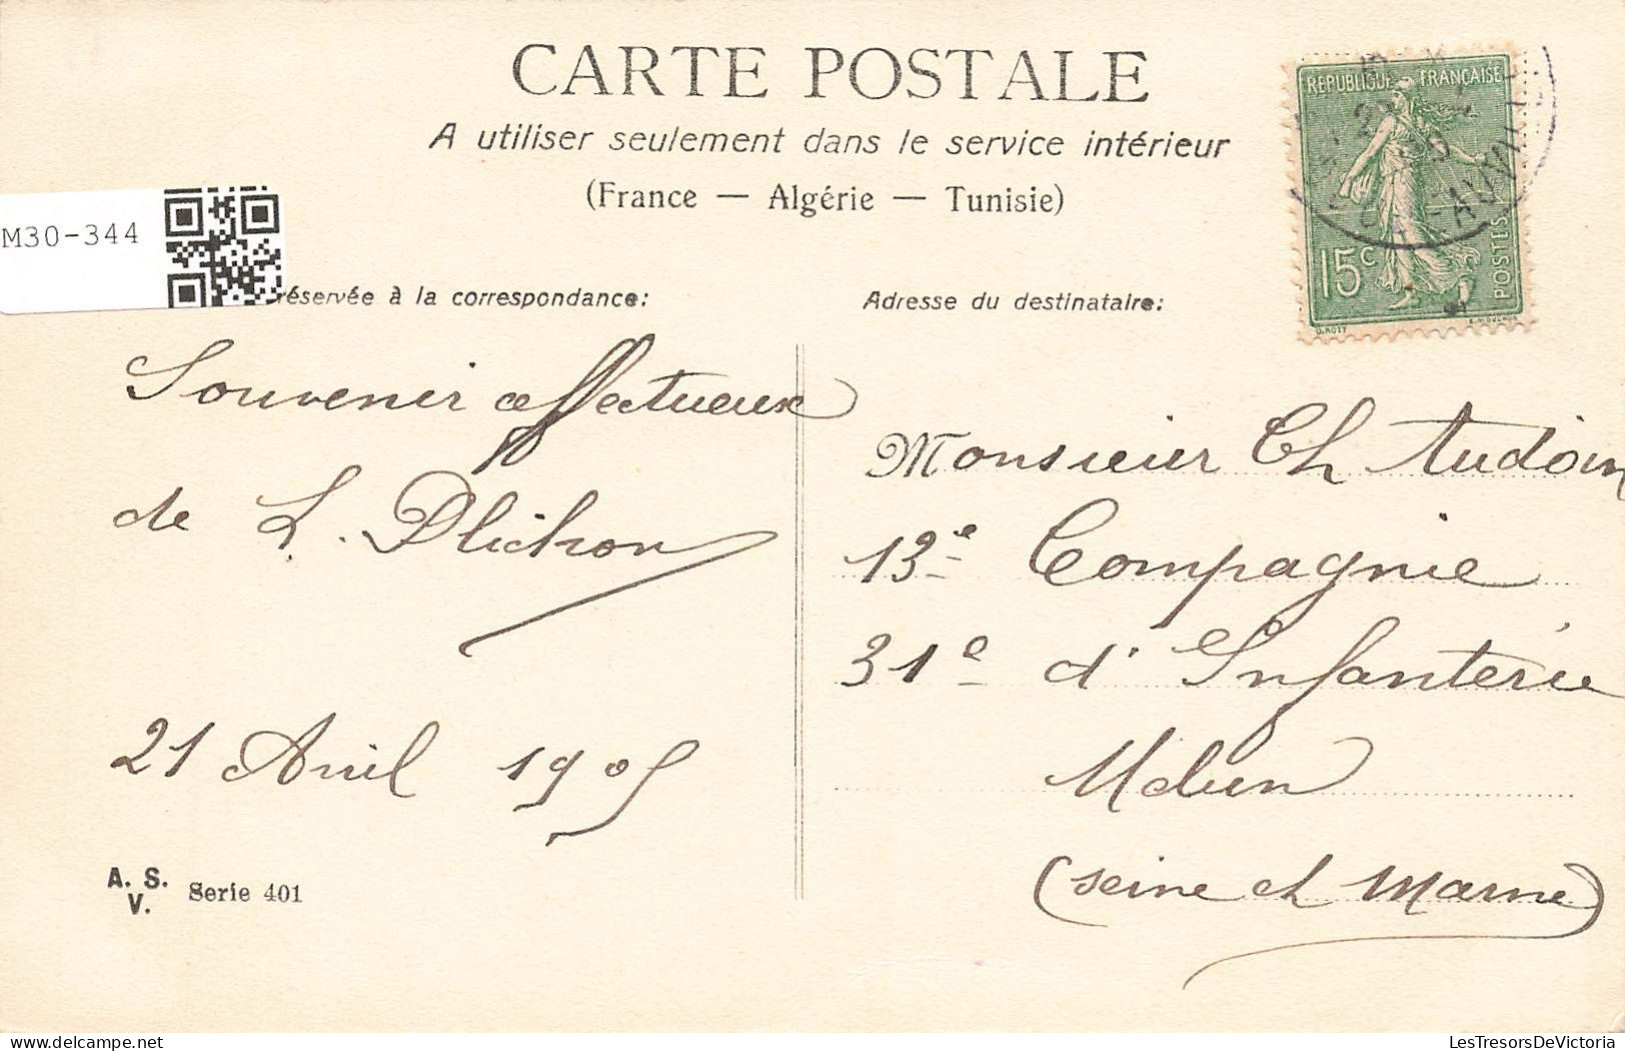 CARTE POSTALE
A utiliser seulement dans le service intérieur
(France — Algérie — Tunisie)
REPUBLIQUE FRANÇAISE
15c
POSTES
O. ROTY
M30-344
réservée à la correspondance:
Adresse du destinataire:
Souvenir affectueux
de L. Plichon
21 Avril 1905
A. S.
V. Serie 401
Monsieur Ch Audoin
13e Compagnie
31e d'Infanterie
Melun
(Seine et Marne)
delcampe.net
LesTresorsDeVictoria